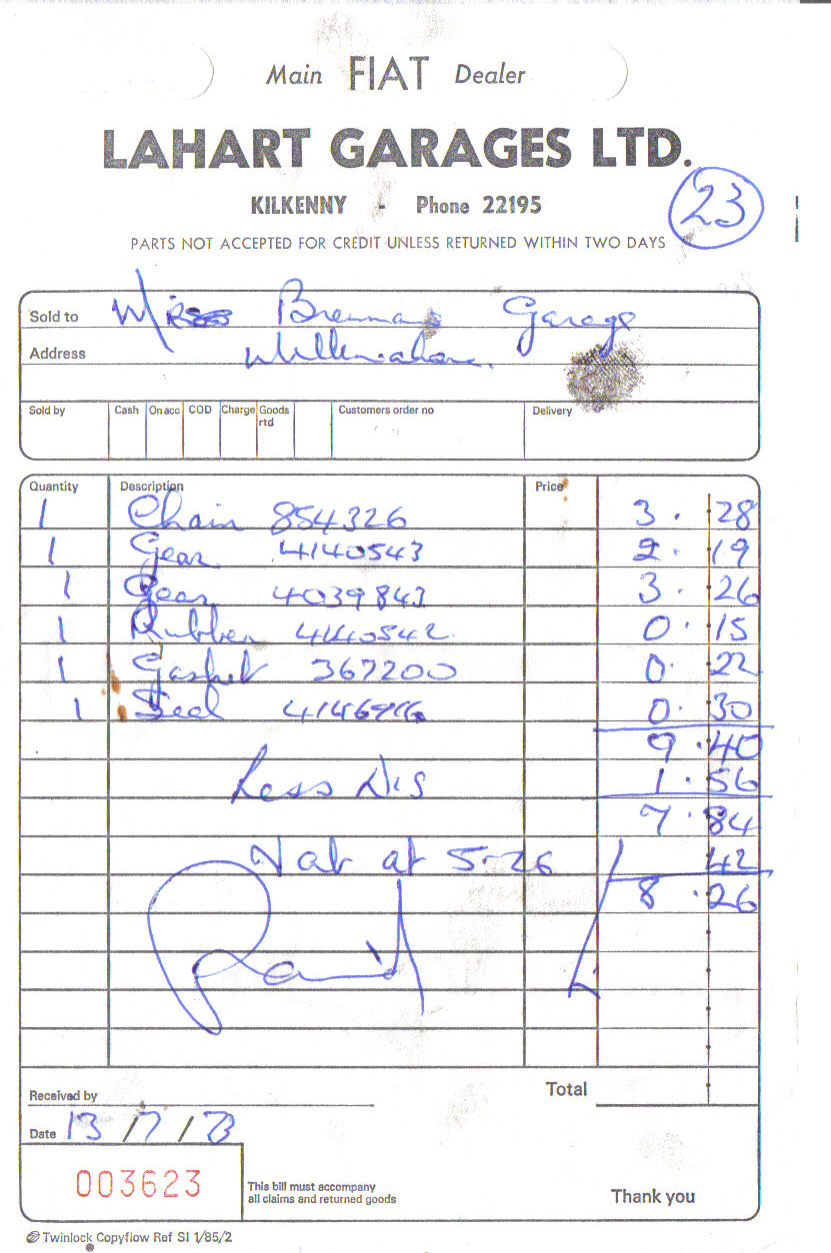 Main FIAT Dealer
LAHART GARAGES LTD.
KILKENNY - Phone 22195
23
PARTS NOT ACCEPTED FOR CREDIT UNLESS RETURNED WITHIN TWO DAYS
Sold to Brennans Garage
Address
Sold by Cash On acc COD Charge Goods rtd Customers order no Delivery
Quantity Description Price
1 Chain 854326 3. 28
1 Gear 4140543 2. 19
1 Gear 4039843 3. 26
1 Rubber 4140542 0. 15
1 Gasket 367200 0. 22
1 Seal 0. 30
9.40
Less Dis 1.56
7.84
Vat at 5.26 42
8.26
Paid
Total
Received by
Date 13/7/73
003623
This bill must accompany
all claims and returned goods
Thank you
Twinlock Copyflow Ref SI 1/85/2